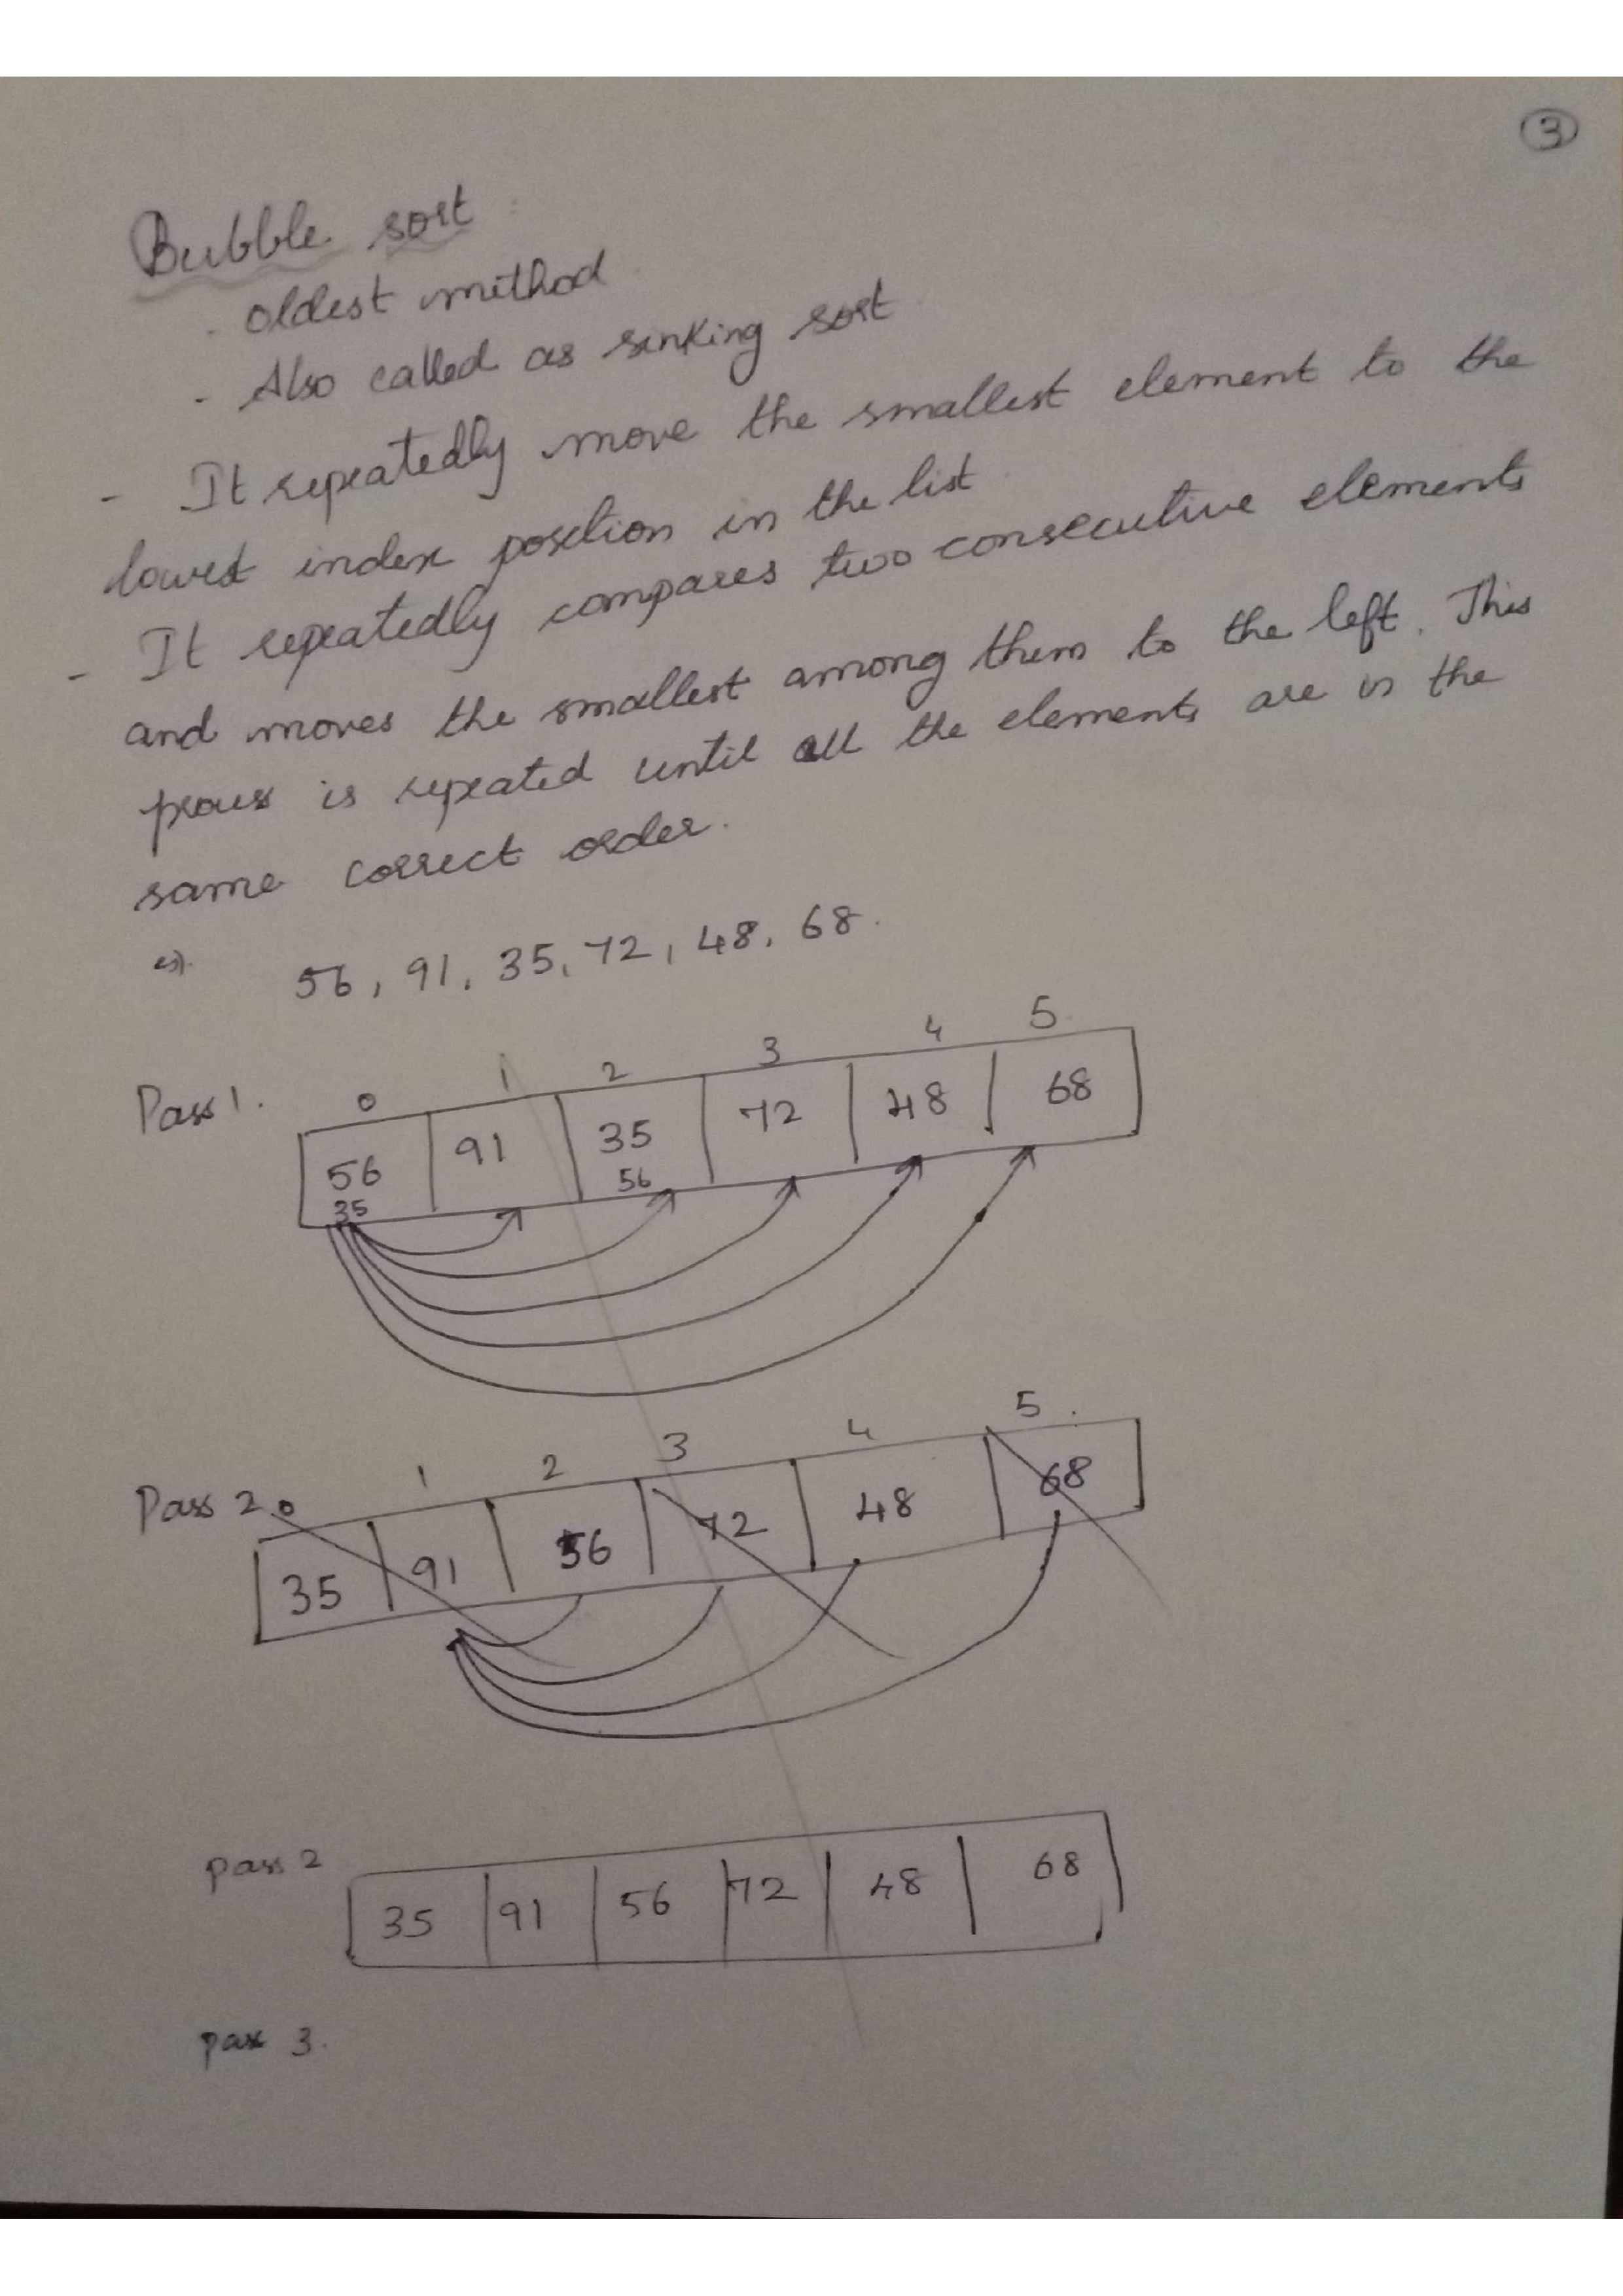 3
Bubble sort
- oldest method
- Also called as sinking sort
- It repeatedly move the smallest element to the
lowest index position in the list
- It repeatedly compares two consecutive elements
and moves the smallest among them to the left. This
process is repeated until all the elements are in the
same correct order.
eg). 56, 91, 35, 72, 48, 68.
Pass 1. 0 1 2 3 4 5
56 91 35 72 48 68
35 56
Pass 2 0 1 2 3 4 5
35 91 56 72 48 68
pass 2
35 91 56 72 48 68
pass 3.